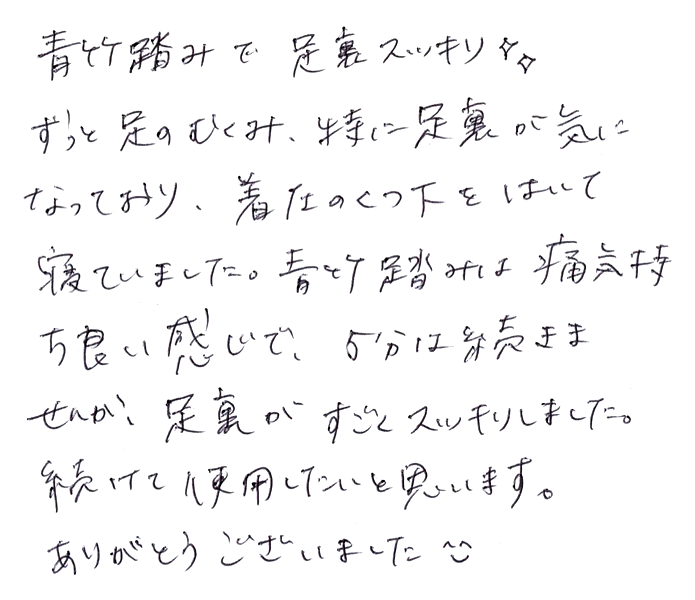 青竹踏みで 足裏スッキリ✧✧
ずっと足のむくみ、特に足裏が気に
なっており、着圧のくつ下をはいて
寝ていました。青竹踏みは痛気持
ち良い感じで、5分は続きま
せんが、足裏がすごくスッキリしました。
続けて使用したいと思います。
ありがとうございました